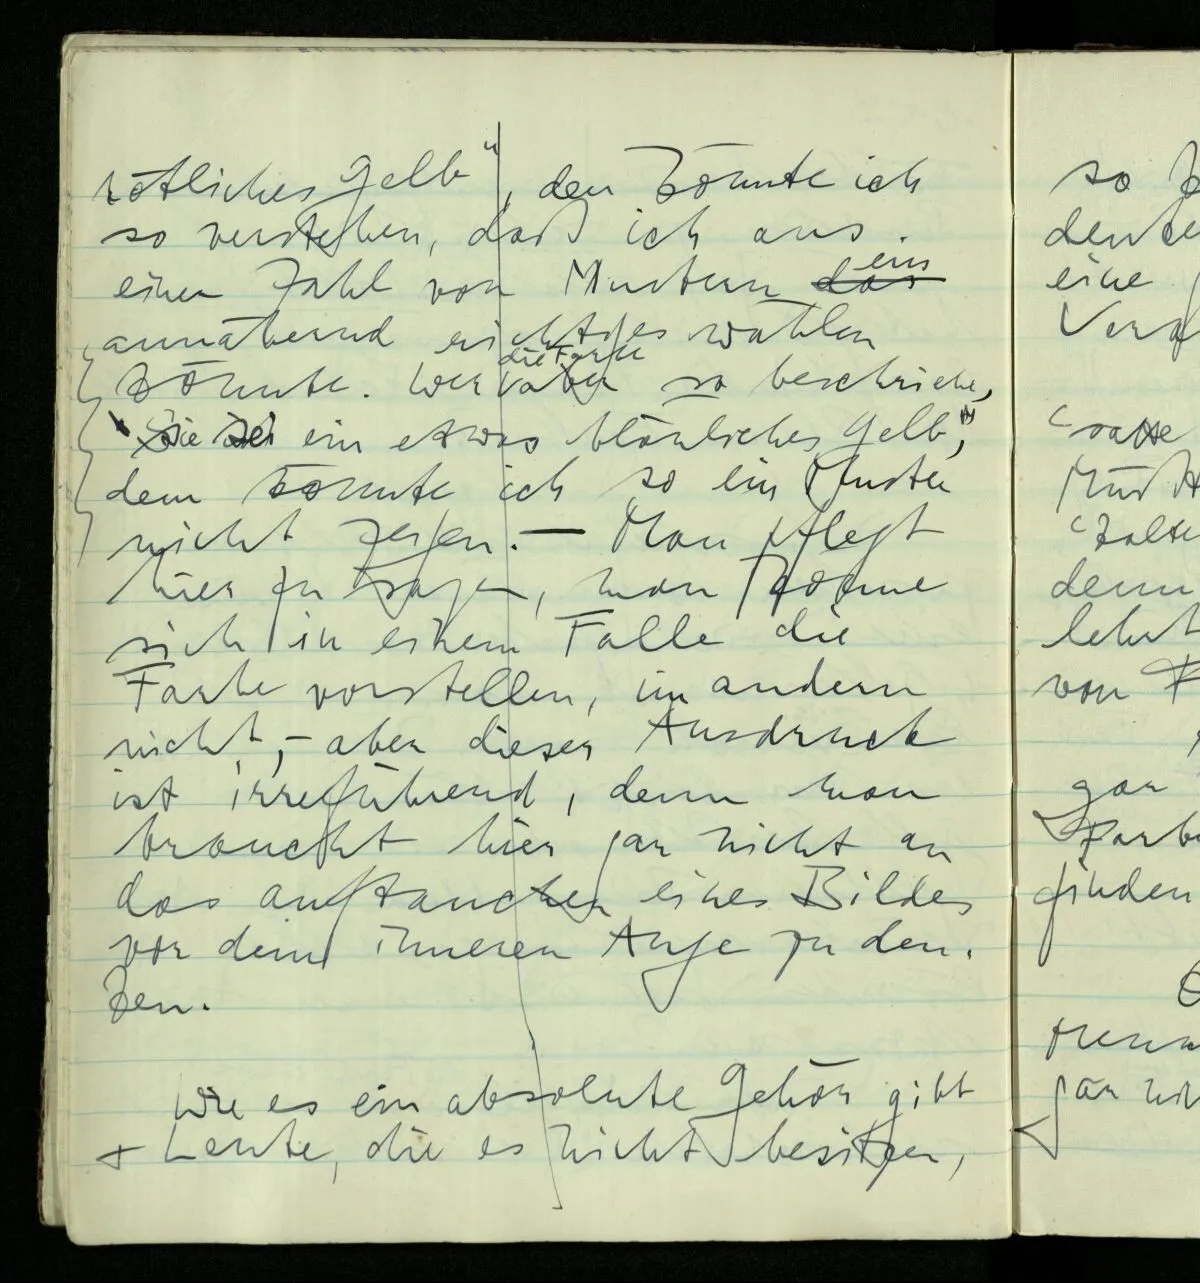 rötliches Gelb“, den könnte ich
so verstehen, daß ich aus
einer Zahl von Mustern das ein
annähernd richtiges wählen
könnte. Wer aber die Farbe so beschriebe,
„Sie sei ein etwas bläuliches Gelb“,
dem könnte ich so ein Muster
nicht zeigen. — Man pflegt
hier zu sagen, man könne
sich in einem Falle die
Farbe vorstellen, im andern
nicht, – aber dieser Ausdruck
ist irreführend, denn man
braucht hier gar nicht an
das auftauchen eines Bildes
vor dem inneren Auge zu den-
ken.
Wie es ein absolute Gehör gibt
+ Leute, die es nicht besitzen,
so
eine
von
gar
finden
gar